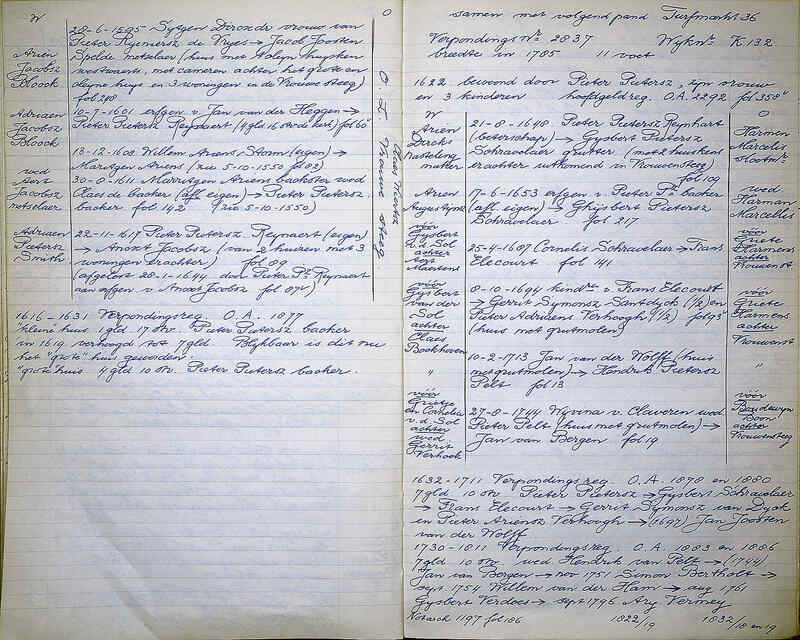 W
O
28-6-1595 Sytgen Dircxdr vrouw van
Pieter Reyniersz de Vryes → Jacob Joosten
Spelde metselaer (huis met
westwaerts, met cameren achter het grote en
cleyne huys en 3 woningen in de Vrouwesteeg)
fol 248
Arien
Jacobsz
Bloock
10-7-1601 erfgen v. Jan van der Heggen →
Pieter Pietersz Reynaert (4 gld 16 st de kerk) fol 60
Adriaen
Jacobsz
Bloock
13-12-1603 Willem Ariens Storm (eigen) →
Maritgen Ariens (zie 5-10-1550 fol 83)
30-0-1611 Marritgen Ariens backster wed
Claes de backer (afl eigen) → Pieter Pietersz
backer fol 42 (zie 5-10-1550)
wed
Jacobsz
metselaer
22-11-1617 Pieter Pietersz Reynaert (eigen)
→ Anoxt Jacobsz (van 2 huizen met 3
woningen erachter) fol 89
(afgelost 28-1-1644 door Pieter Psz Reynaert
aan erfgen v. Anoxt Jacobsz fol 87v)
Adriaen
Pietersz
Smith
Nieuwe steeg
1616 - 1631 Verpondingsreg. O. A. 1877
"kleine huis 1 gld 17 st Pieter Pietersz backer
in 1619 verhoogd tot 7 gld. Blijkbaar is dit nu
het "grote" huis geworden.
"grote huis 4 gld 10 st. Pieter Pietersz backer.
samen met volgend pand Turfmarkt 36
Verpondings Nr 2837 Wijknr. K 132
breedte in 1785 11 voet
1622 bewoond door Pieter Pietersz, zijn vrouw
en 3 kinderen hoofdgeldreg. O.A. 2292 fol 358v
W
O
Arien
Dircks
21-8-1648 Pieter Pietersz Reynhart
(beterschap) → Gysbert Pietersz
Schravelaer grutter (met 2 huiskens
erachter uitkomend in Vrouwensteeg)
fol 109
Harmen
Marcelis
Arien
Augustijnsz
7-6-1653 erfgen v. Pieter Psz backer
(afl eigen) → Ghijsbert Pietersz
Schravelaer fol 217
wed
Harman
Marcellis
vóór
Gysbert
v.d. Sol
achter
Maertens
25-4-1687 Cornelis Schravelaer → Frans
Elecourt fol 141
vóór
Griete
Harmens
achter
Vrouwenst
vóór
Gysbert
van der
Sol
achter
Claes
Bockhoven
8-10-1694 kindrn v. Frans Elecourt
→ Gerrit Symonsz Santdyck (1/2) en
Pieter Adriaens Verhoogh (1/2) fol 93v
(huis met grutmolen)
vóór
Griete
Harmens
achter
Vrouwenst
"
10-2-1713 Jan van der Wolff (huis
met grutmolen) → Hendrik Pietersz
Pelt fol 13
"
vóór
Grietje
en Cornelia
v. d. Sol
achter
wed
Gerrit
Verhoek
27-8-1744 Wyvina v. Claveren wed
Pieter Pelt (huis met grutmolen) →
Jan van Bergen fol 19
vóór
Boudewyn
Boon
achter
Vrouwensteeg
1632-1711 Verpondingsreg. O. A. 1878 en 1880
7 gld 10 st Pieter Pietersz → Gysbert Schravelaer
→ Frans Elecourt → Gerrit Symonsz van Dyck
en Pieter Ariensz Verhoogh → (1697) Jan Joosten
van der Wolff
1730-1811 Verpondingsreg. O. A. 1883 en 1886
7 gld 10 st wed Hendrik van Pelt → (1744)
Jan van Bergen → nov 1751 Simon Bertholt →
sept 1754 Willem van der Ham → aug 1761
Gysbert Verdoes → sept 1796 Ary Vermey
Notarisch 1197 fol 186 1822/19 1832/18 en 19